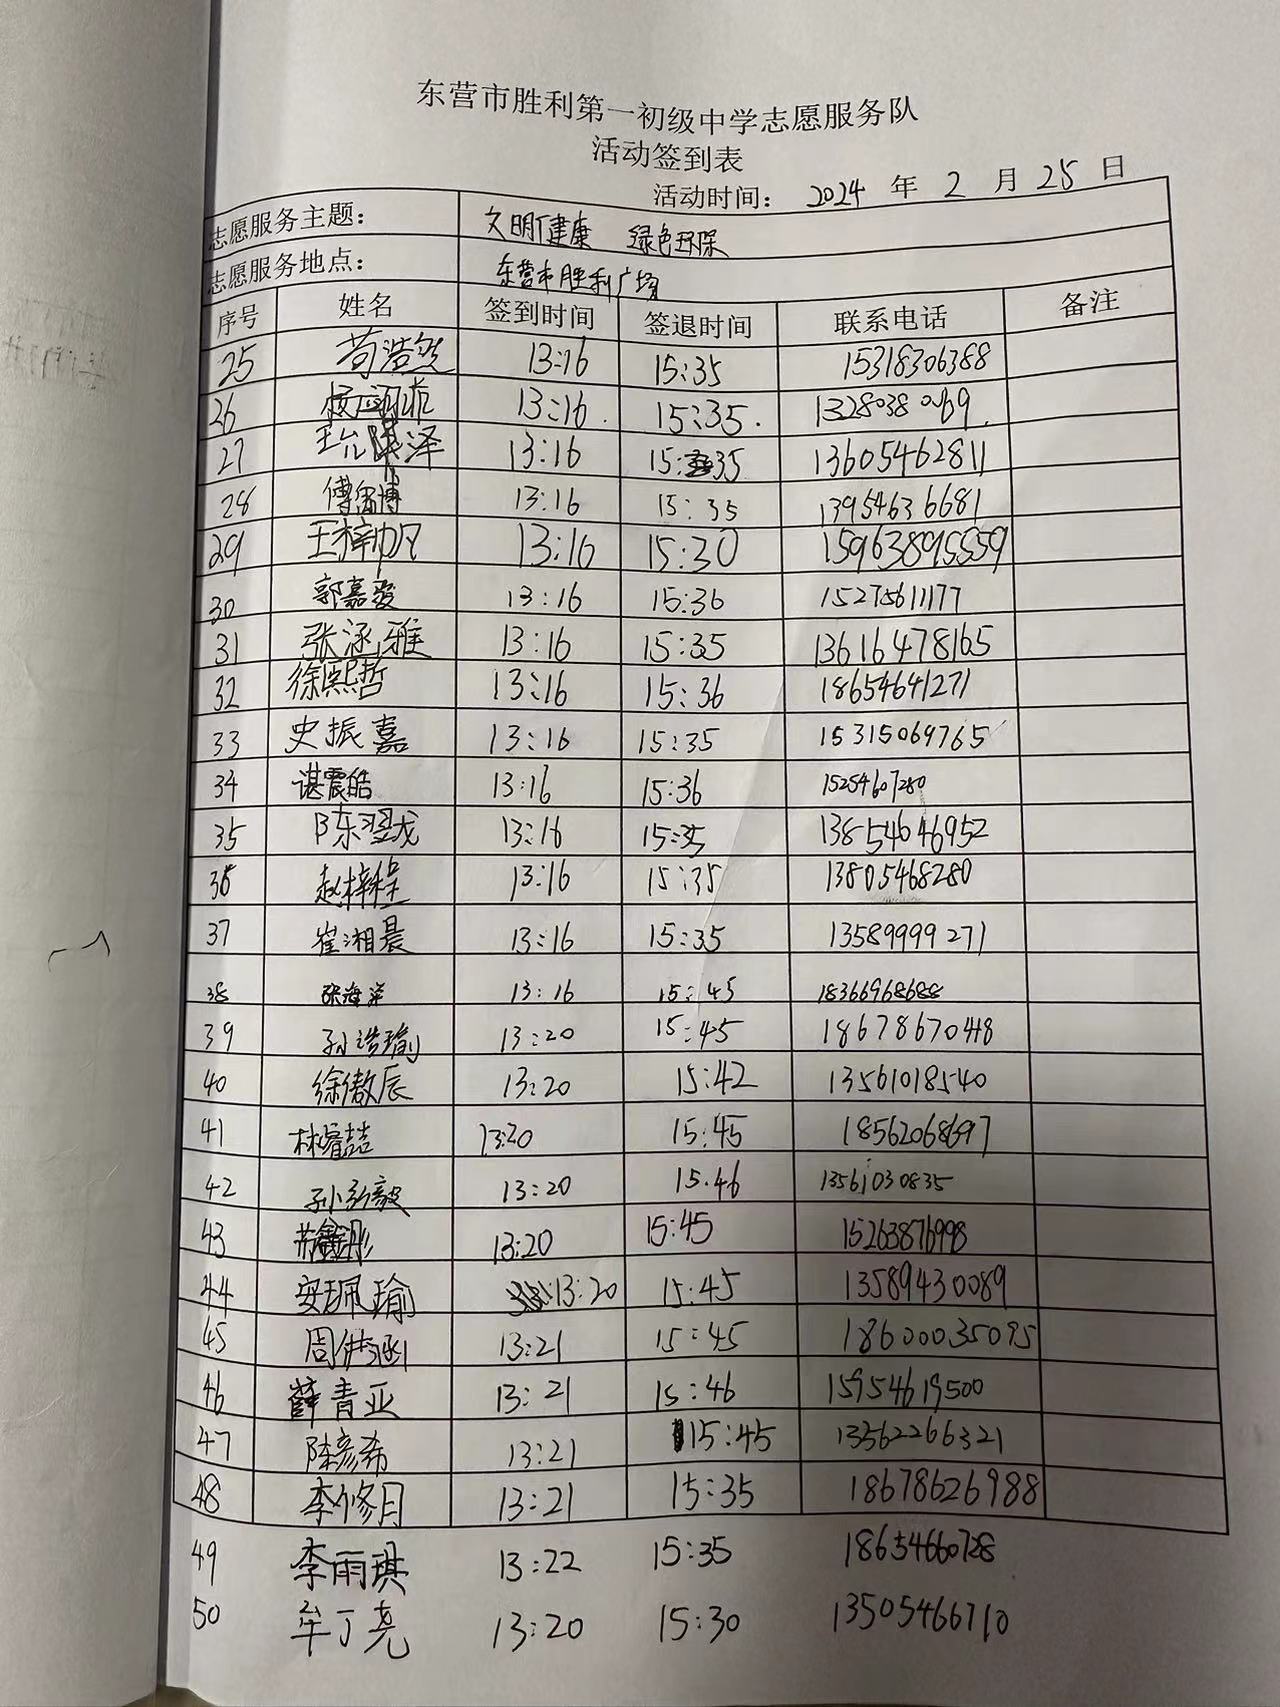 东营市胜利第一初级中学志愿服务队
活动签到表
活动时间： 2024 年 2 月 25 日
志愿服务主题： 文明健康 绿色环保
志愿服务地点： 东营市胜利广场
序号 姓名 签到时间 签退时间 联系电话 备注
25 苟浩然 13:16 15:35 15318306388
26 13:16. 15:35.
27 13:16 15:35 13605462811
28 13:16 15:35 13954636681
29 王梓帆 13:16 15:30 15963895559
30 郭嘉俊 13:16 15:36 15275611177
31 张涵雅 13:16 15:35 13616478165
32 徐熙哲 13:16 15:36 18654641271
33 史振嘉 13:16 15:35 15315069765
34 谌震皓 13:16 15:36 15254607280
35 陈翌龙 13:16 15:35 13854646952
36 赵梓程 13:16 15:35 13805468280
37 崔湘晨 13:16 15:35 13589999271
38 张海洋 13:16 15:45 18366968688
39 孙浩瑜 13:20 15:45 18678670448
40 徐傲辰 13:20 15:42 13561018540
41 林睿喆 13:20 15:45 18562068697
42 孙弘毅 13:20 15.46 13561030835
43 13:20 15:45 15263876998
44 安珮瑜 13:20 15:45 13589430089
45 周伊涵 13:21 15:45 18600035095
46 薛青亚 13:21 15:46 15954619500
47 陈彦希 13:21 15:45 13562266321
48 李修月 13:21 15:35 18678626988
49 李雨琪 13:22 15:35 18654660728
50 牟丁尧 13:20 15:30 13505466710